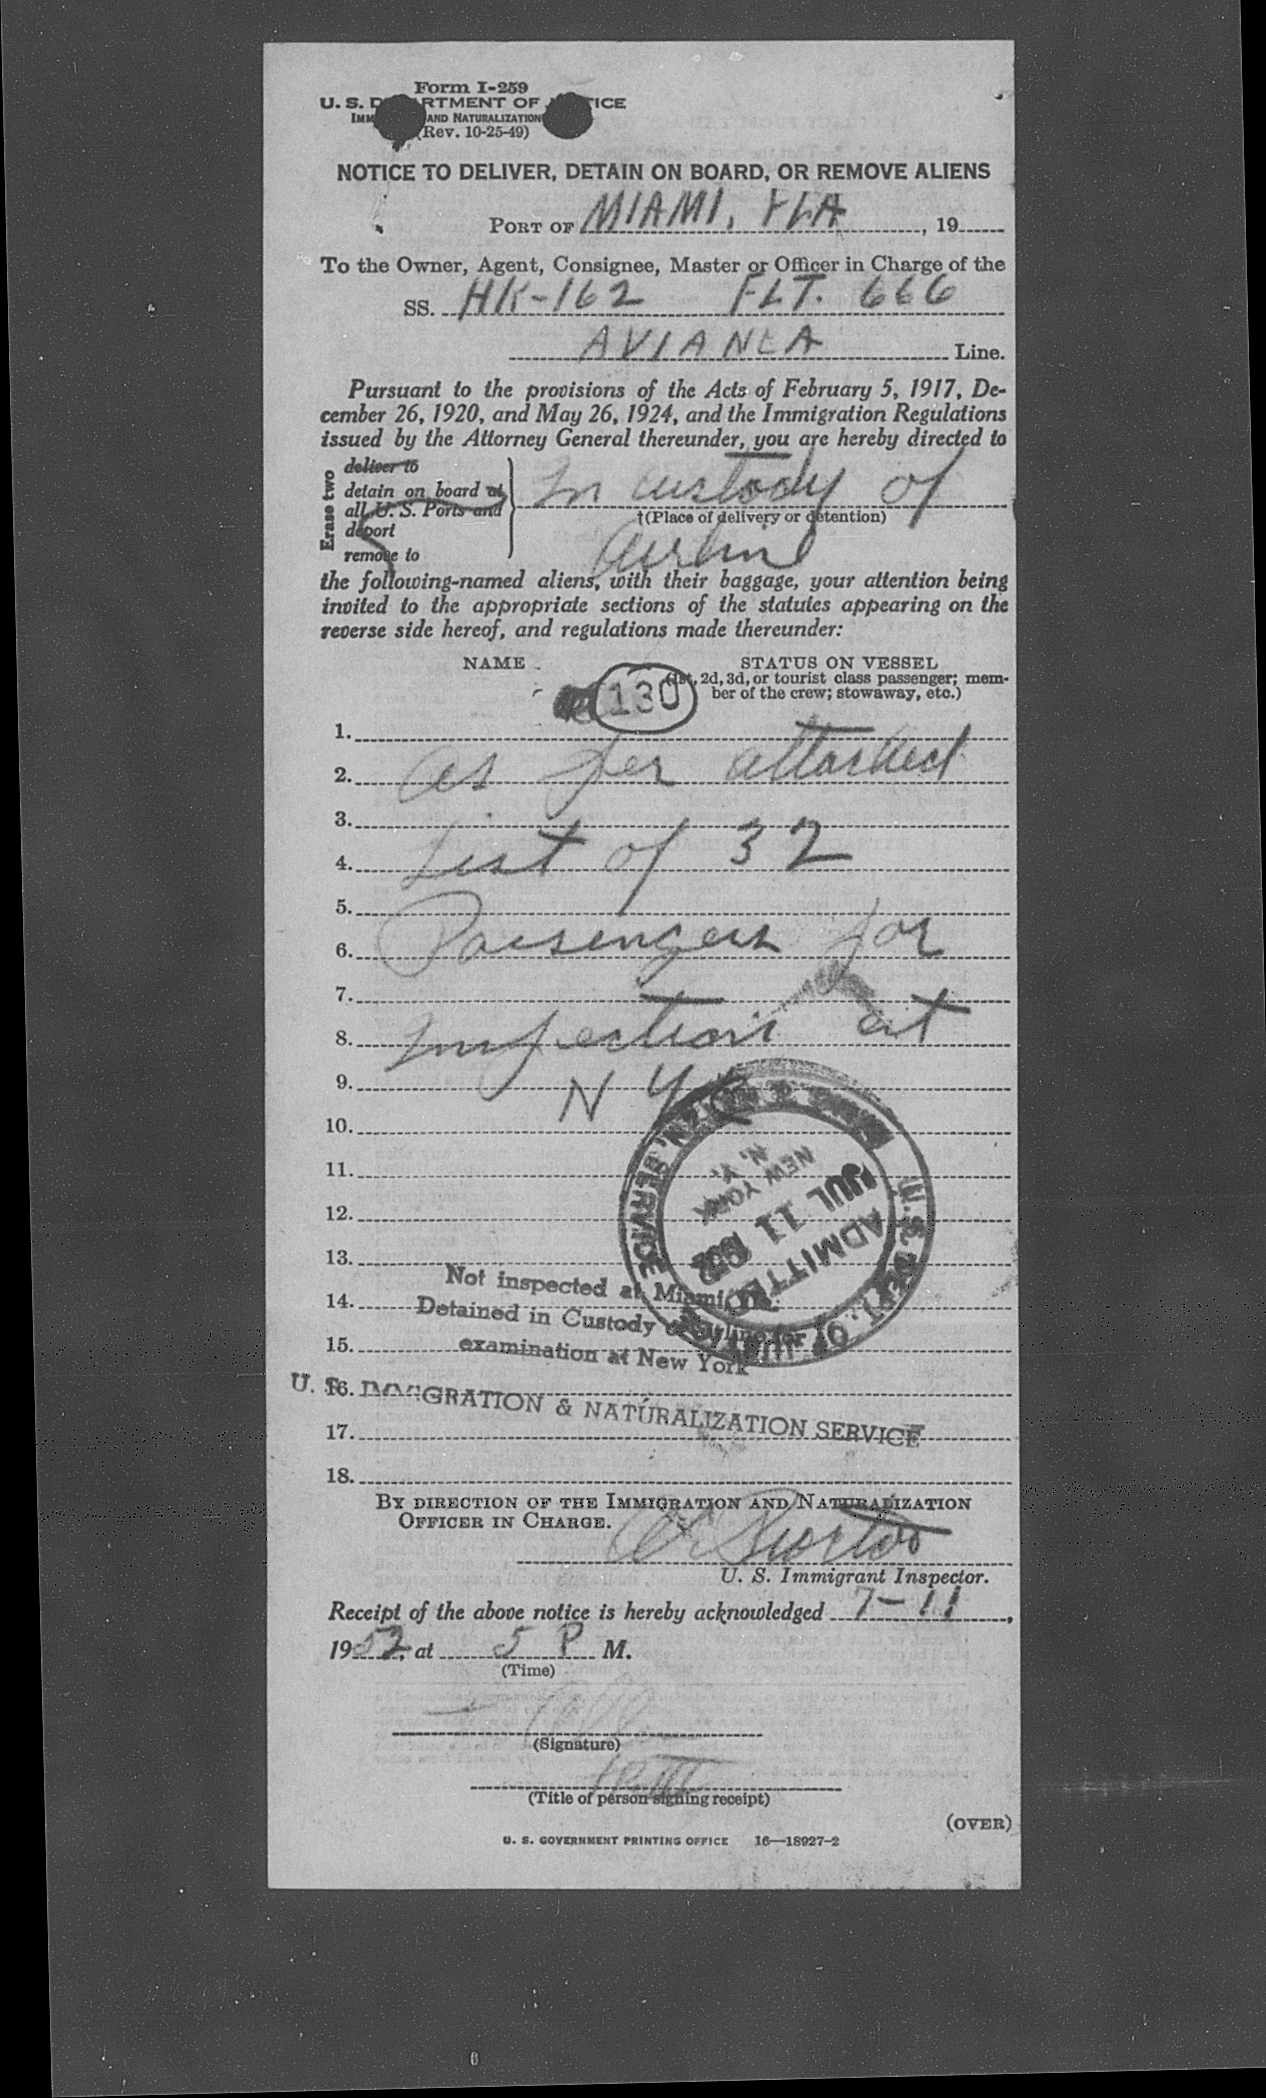 Form I-259
U. S. DEPARTMENT OF JUSTICE
IMM AND NATURALIZATION
(Rev. 10-25-49)
NOTICE TO DELIVER, DETAIN ON BOARD, OR REMOVE ALIENS
PORT OF MIAMI, FLA, 19
To the Owner, Agent, Consignee, Master or Officer in Charge of the
SS. HK-162 FLT. 666
AVIANCA Line.
Pursuant to the provisions of the Acts of February 5, 1917, De-
cember 26, 1920, and May 26, 1924, and the Immigration Regulations
issued by the Attorney General thereunder, you are hereby directed to
Erase two
deliver to
detain on board at
all U. S. Ports and
deport
remove to
In custody of
†(Place of delivery or detention)
Airline
the following-named aliens, with their baggage, your attention being
invited to the appropriate sections of the statutes appearing on the
reverse side hereof, and regulations made thereunder:
NAME STATUS ON VESSEL
(1st, 2d, 3d, or tourist class passenger; mem-
ber of the crew; stowaway, etc.)
130
1.
2. As per attached
3.
4. List of 32
5.
6. Passengers for
7.
8. Inspection at
9. N Y
10.
11.
12.
13.
14.
15.
16.
17.
18.
U. S. DEPT. OF JUSTICE
IMMIG. & NATZN. SERVICE
ADMITTED
JUL 11 1952
NEW YORK
N. Y.
Not inspected at Miami
Detained in Custody of Airline for
examination at New York
U. S. IMMIGRATION & NATURALIZATION SERVICE
BY DIRECTION OF THE IMMIGRATION AND NATURALIZATION
OFFICER IN CHARGE.
U. S. Immigrant Inspector.
Receipt of the above notice is hereby acknowledged 7-11,
1952, at 5 P M.
(Time)
(Signature)
(Title of person signing receipt)
(OVER)
U. S. GOVERNMENT PRINTING OFFICE 16—18927-2